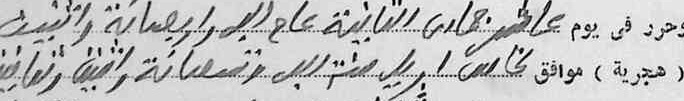 وحرر فى يوم عاشر جمادى الثانية عام الف واربعمائة واثنين
( هجرية ) موافق لخامس ابريل سنة الف وتسعمائة واثنين وثمانين